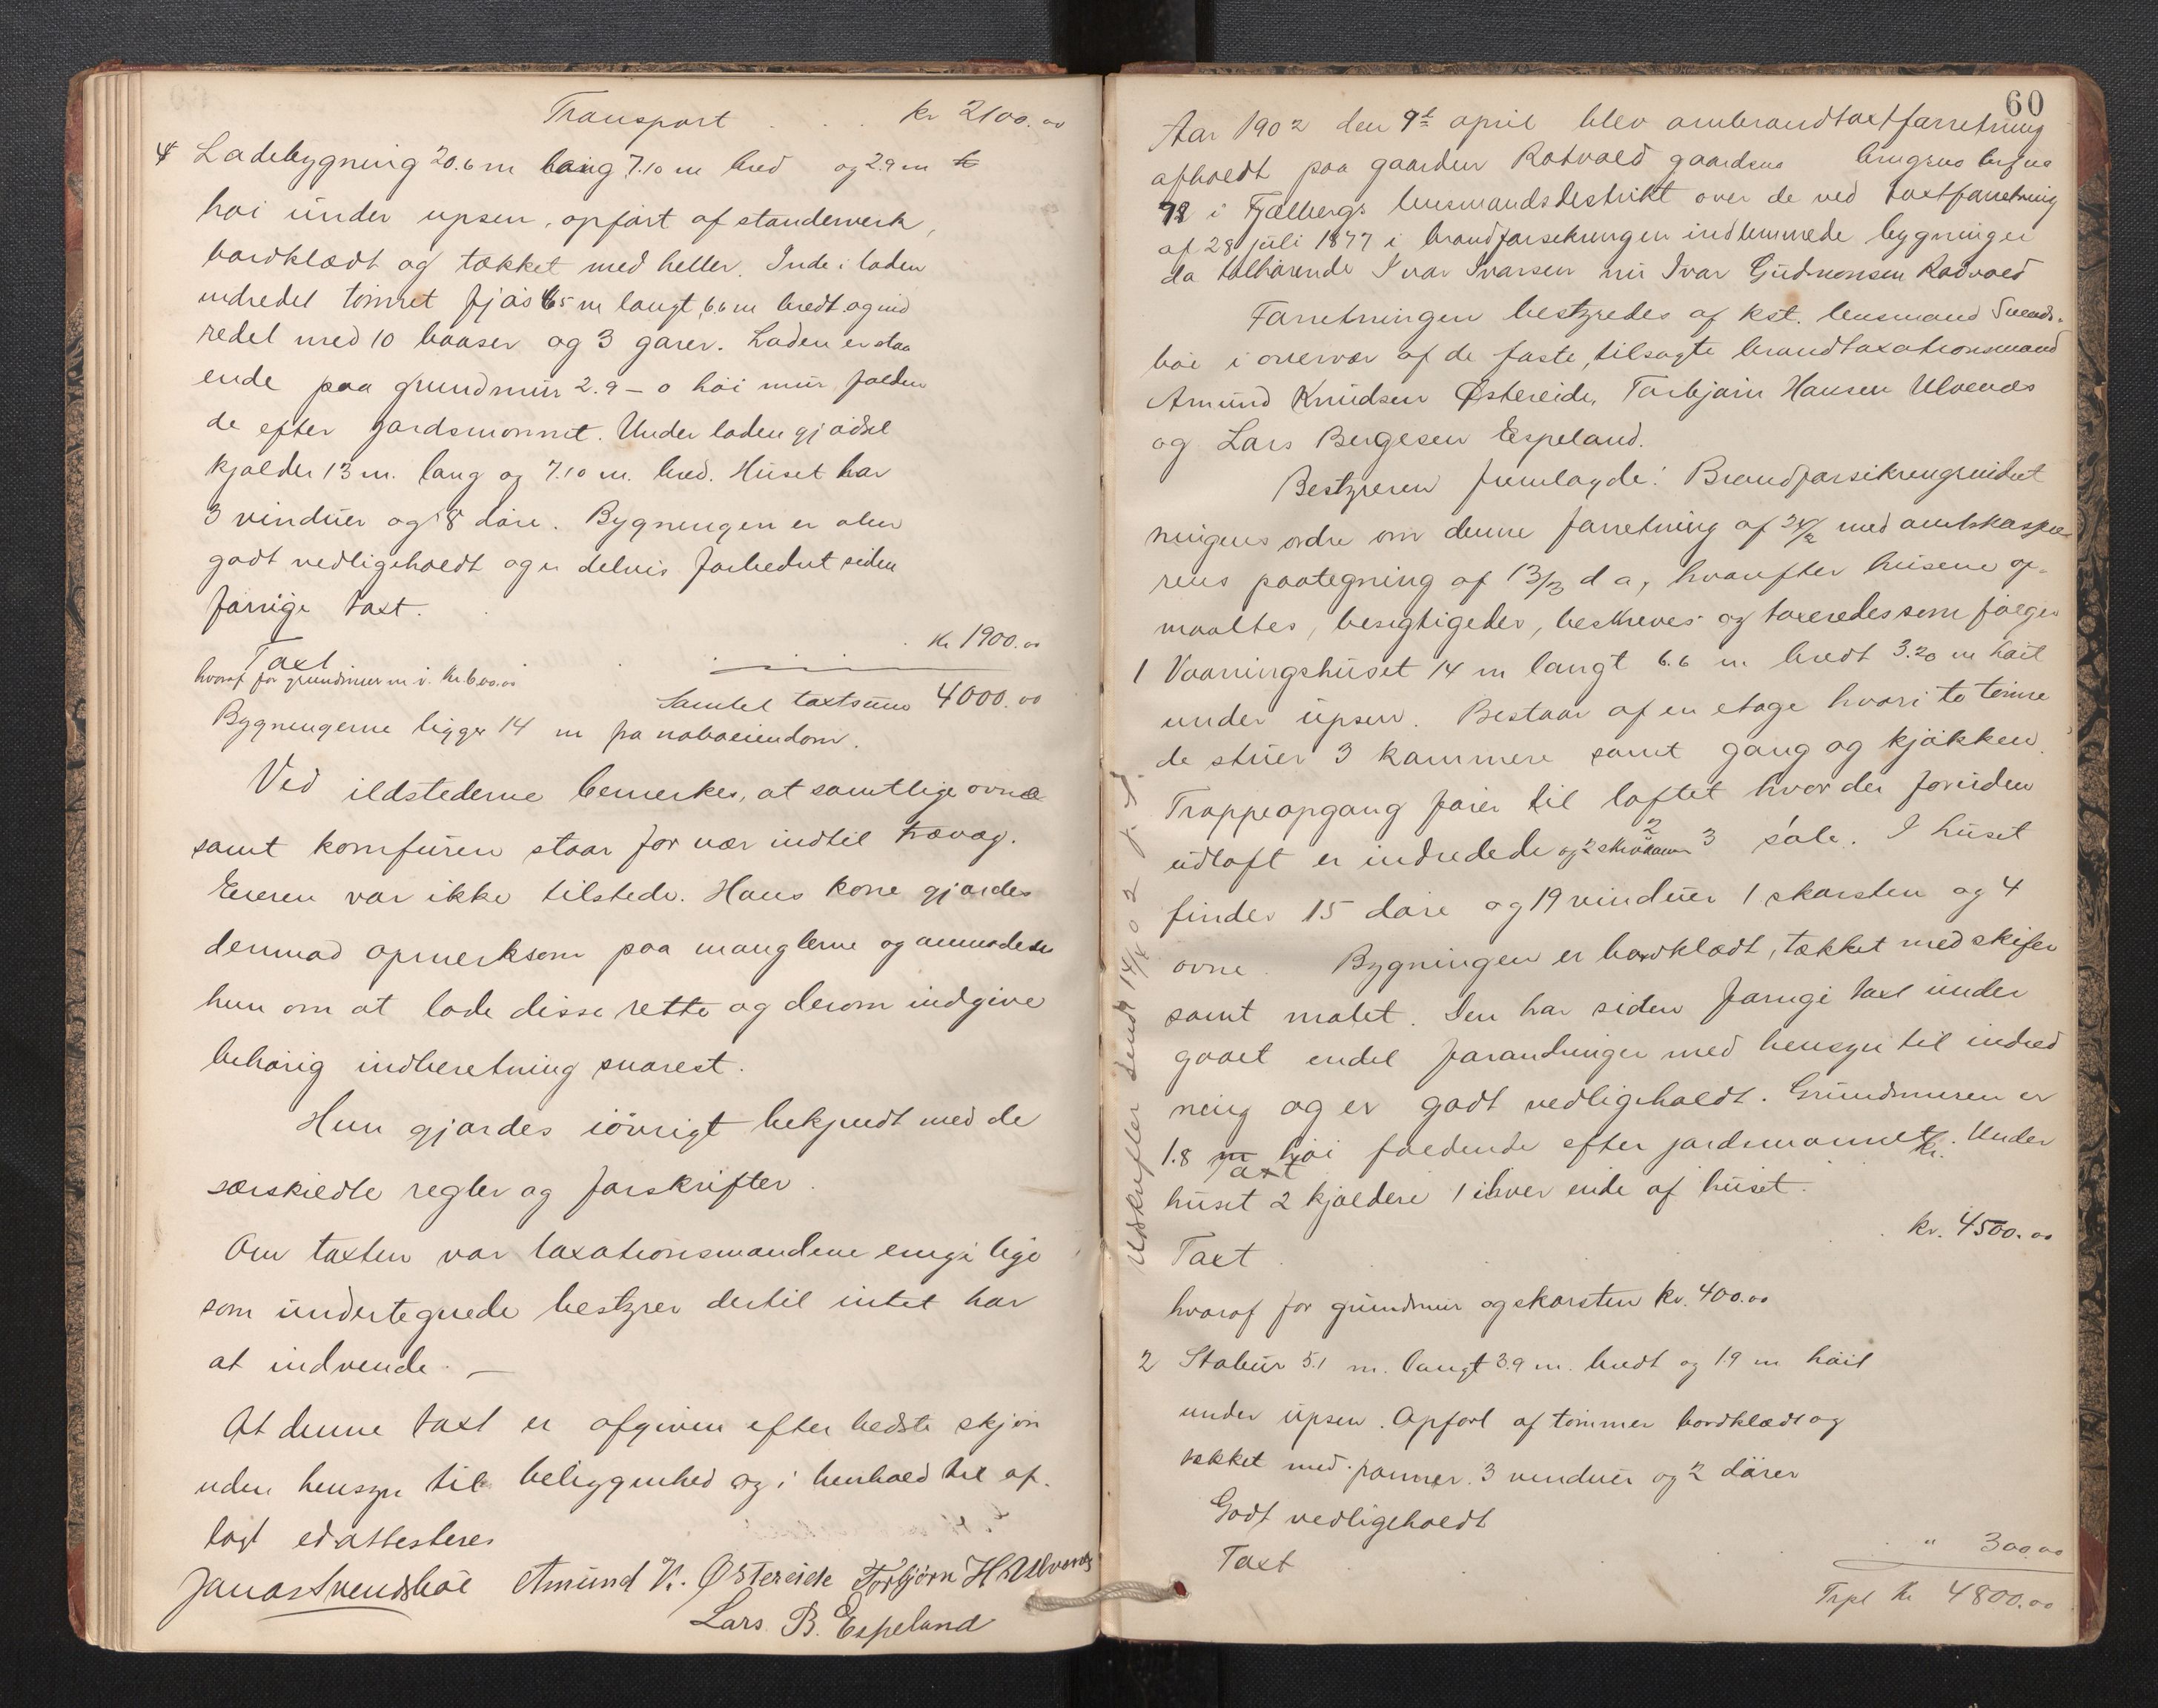 Transport . . . kr 2100.00
4 Ladebygning 20.6 m lang 7.10 m bred og 2.9 m
høi under upsen, opført af standerverk,
bordklædt og tækket med heller. Inde i laden
indredet tømret fjøs 6.5 m langt, 6.6 m bredt og ind
redet med 10 baaser og 3 garer. Laden er staa
ende paa grundmur 2.9 – 0 høi mur, falden
de efter jordsmonnet. Under laden gjødsel
kjælder 13 m. lang og 7.10 m. bred. Huset har
3 vinduer og 8 døre. Bygningen er over
godt vedligeholdt og er delvis forbedret siden
forrige taxt.
Taxt . . . kr 1900.00
hvoraf for grundmuren kr. 600.00
Samlet taxtsum 4000.00
Bygningerne ligger 14 m fra naboeiendom.
Ved ildstederne bemerkes, at samtlige ovne
samt komfuren staar for nær indtil trævæg.
Eieren var ikke tilstede. Hans kone gjordes
dermed opmerksom paa manglerne og anmodedes
hun om at lade disse rette og derom indgive
behørig indberetning snarest.
Hun gjordes iøvrigt bekjendt med de
særskildte regler og forskrifter.
Om taxten var taxationsmændene enige lige
som undertegnede bestyrer dertil intet har
at indvende. –
At denne taxt er afgiven efter bedste skjøn
uden hensyn til beliggenhed og i henhold til af-
lagt ed attesteres
Jonas Svendsbøe Amund K. Østereide Torbjørn H Ulvenes
Lars B. Espeland
60
Aar 1902 den 9de april blev ombrandtaxtforretning
afholdt paa gaarden Rødvold gaardens brugsno
i Fjelbergs lensmandsdistrikt over de ved taxtforretning
af 28 juli 1877 i brandforsikringen indlemmede bygninger
da tilhørende Ivar Ivarsen nu Ivar Gudmonsen Rødvold
Forretningen bestyredes af kst. lensmand Svends-
bøe i overvær af de faste, tilsagte brandtaxationsmænd
Amund Knudsen Østereide, Torbjørn Hansen Ulvenes
og Lars Bergesen Espeland.
Bestyreren fremlagde: Brandforsikringsindret
ningens ordre om denne forretning af 24/2 med amtskasse
rens paategning af 13/3 d a, hvorefter husene op-
maaltes, besigtigedes, beskreves og taxeredes som følger
1 Vaaningshuset 14 m langt 6.6 m bredt 3.20 m høit
under upsen. Bestaar af en etage hvori to tømre
de stuer 3 kammere samt gang og kjøkken.
Trappeopgang fører til loftet hvor der foruden
udloft er indredede 3 sale. I huset
findes 15 døre og 19 vinduer 1 skorsten og 4
ovne. Bygningen er bordklædt, tækket med skifer
samt malet. Den har siden forrige taxt under
gaaet endel forandringer med hensyn til indred
ning og er godt vedligeholdt. Grundmuren er
1.8 m høi faldende efter jordsmonnet. Under
huset 2 kjældere 1 i hver ende af huset.
Taxt . . . kr. 4500.00
hvoraf for grundmur og skorsten kr. 400.00
2 Stabur 5.1 m. langt 3.9 m. bredt og 1.9 m høit
under upsen. Opført af tømmer bordklædt og
tækket med panner. 3 vinduer og 2 dører
Godt vedligeholdt
Taxt . . . " 300.00
Trpt kr 4800.00
Udskrifter sendt 14/4 02 J. S.